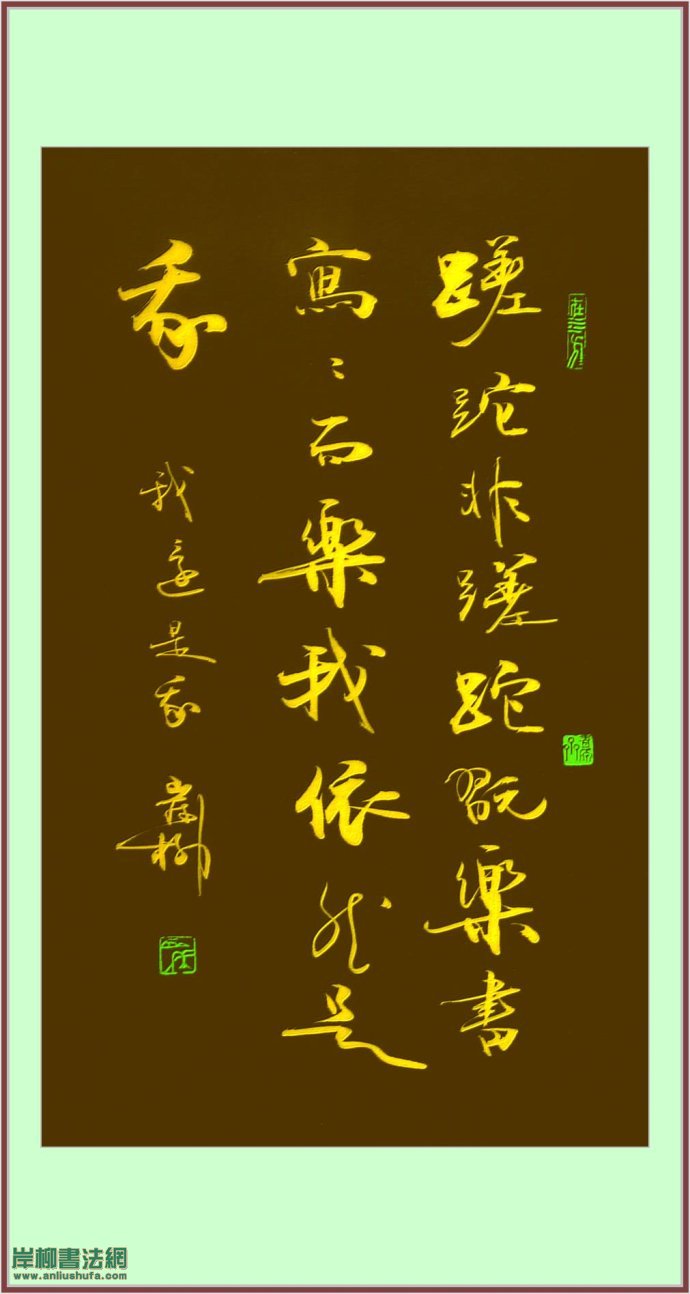 蹉跎非蹉跎翫樂書
寫〻而樂我依然是
我
我還是我 岸柳
岸柳書法網
www.anliushufa.com